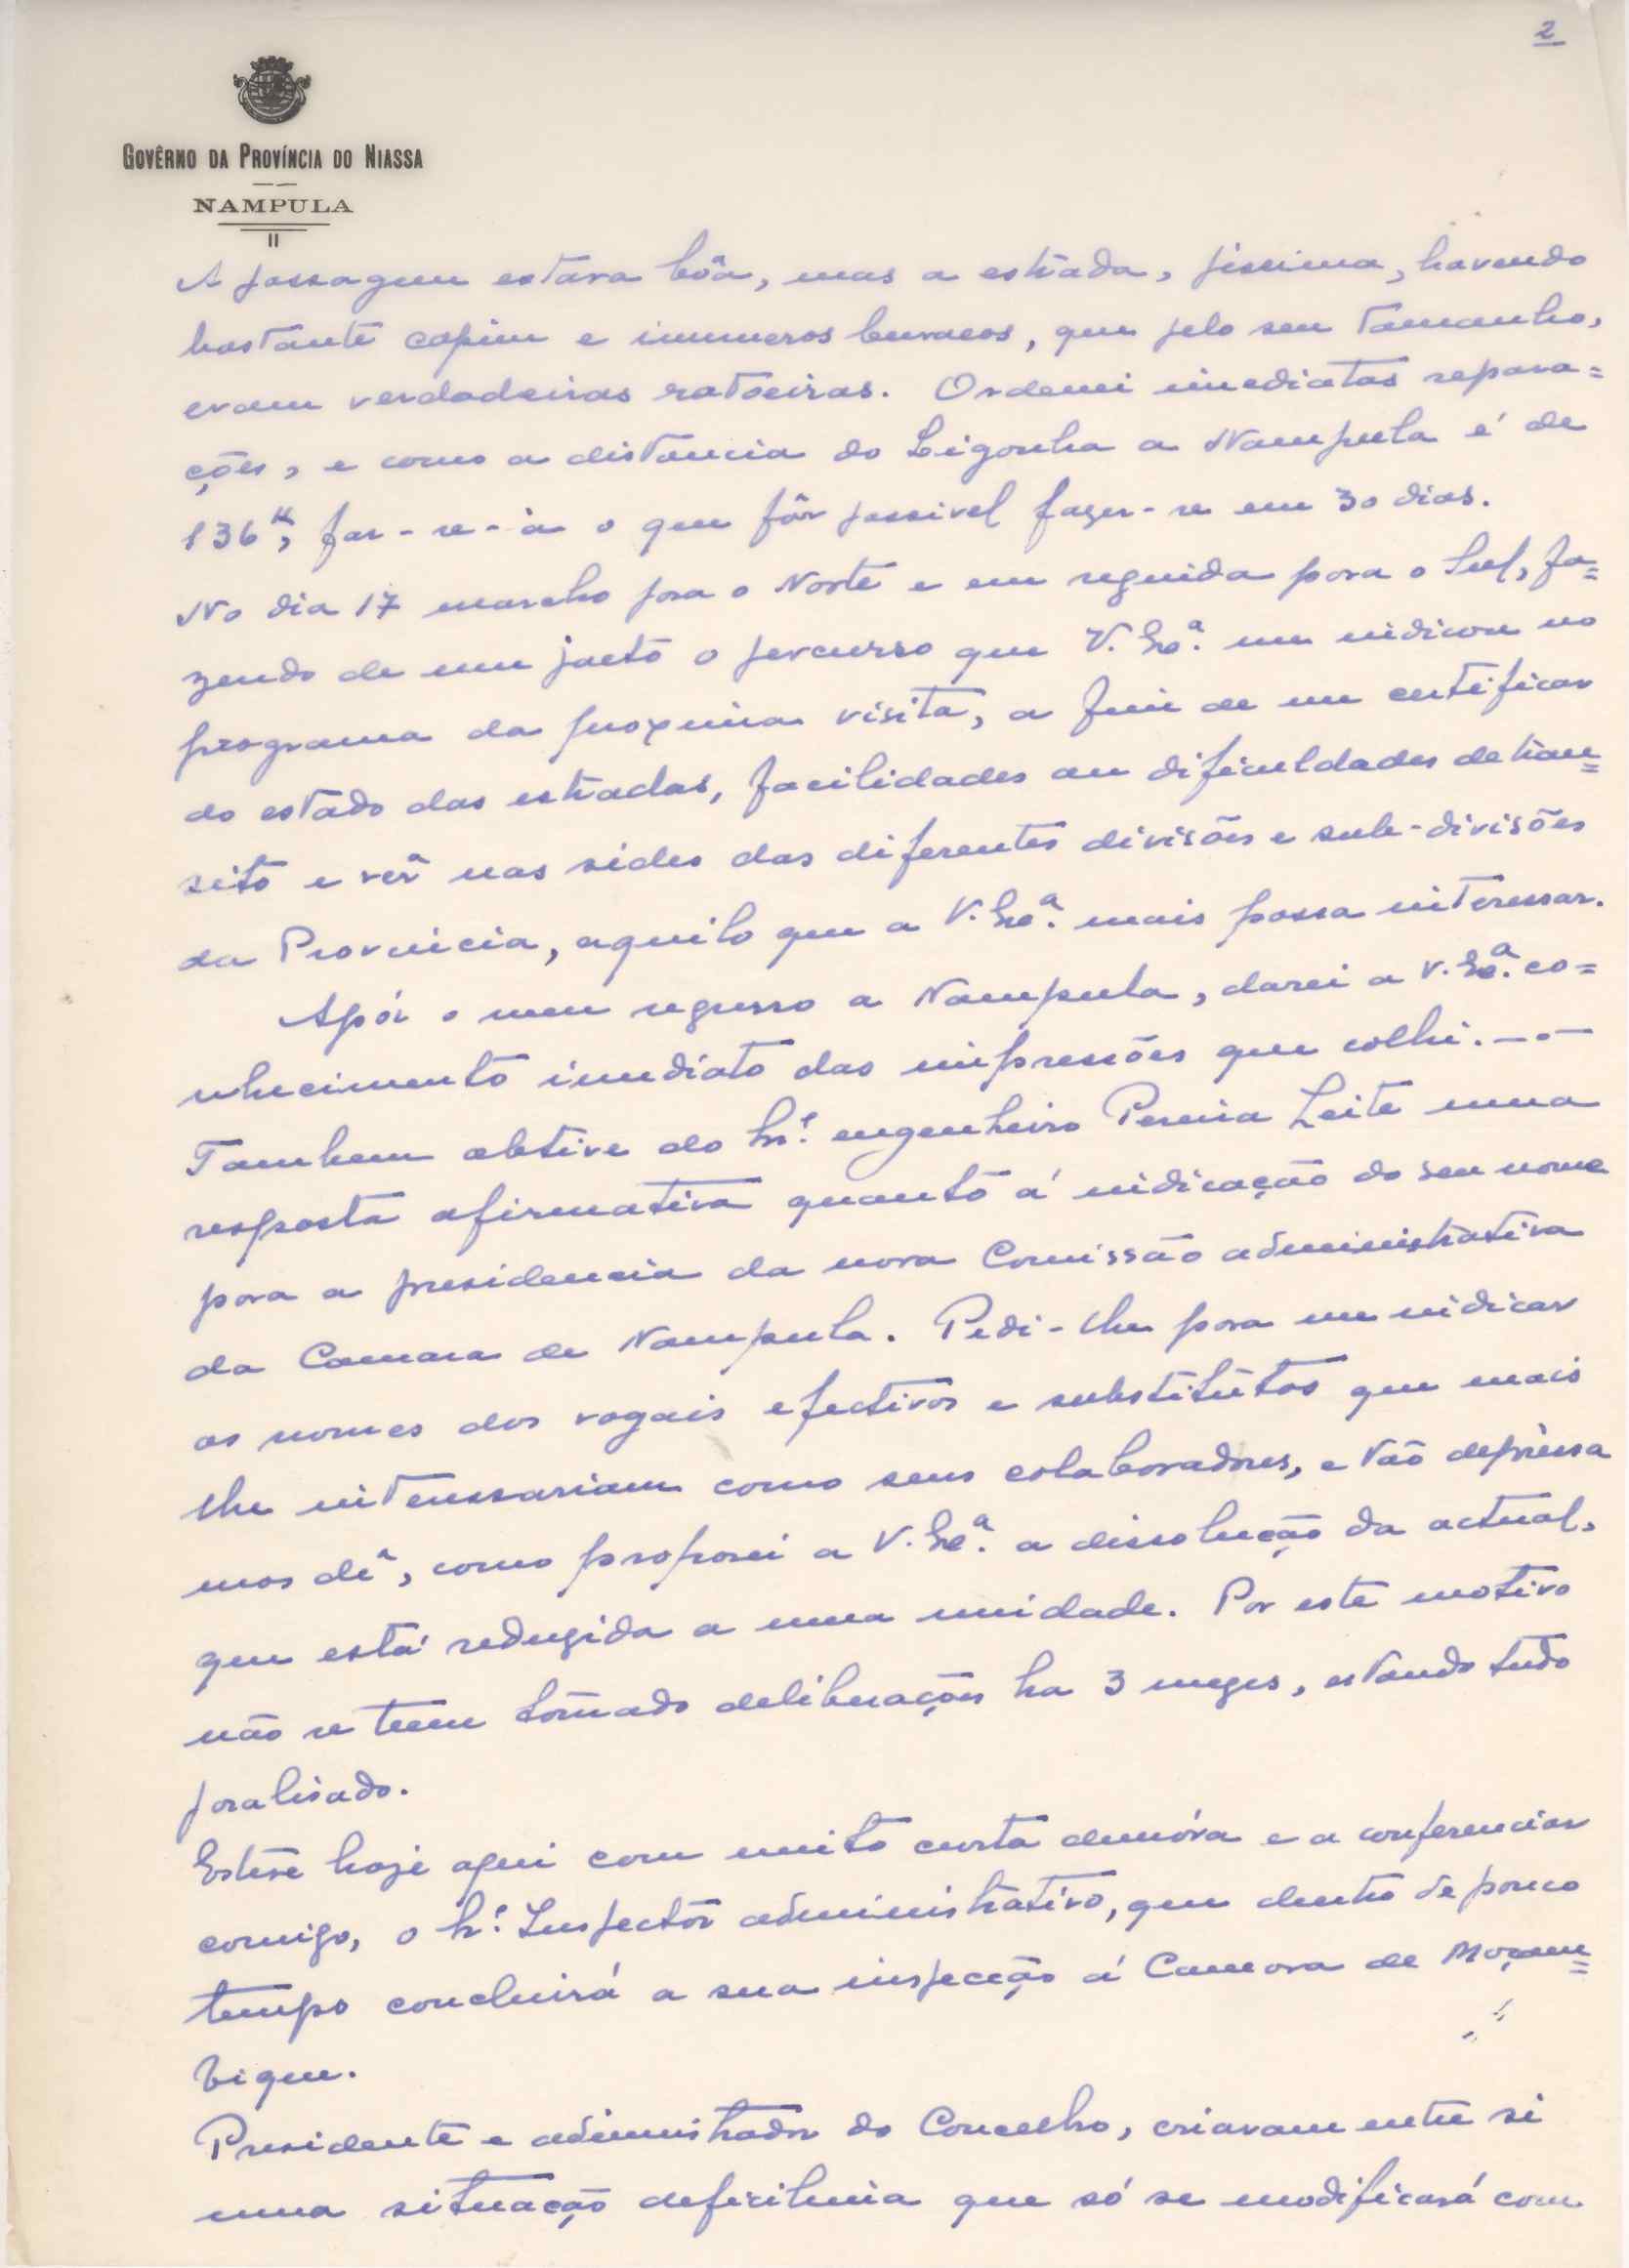 2
GOVÊRNO DA PROVÍNCIA DO NIASSA
NAMPULA
A passagem estava bôa, mas a estrada, pissima, havendo
bastante capim e inumeros buracos, que pelo seu tamanho,
eram verdadeiras ratoeiras. Ordenei imediatas repara=
ções, e como a distancia do Ligonha a Nampula é de
136 K, far-se-à o que fôr possivel fazer-se em 30 dias.
No dia 17 marcho para o Norte e em seguida para o Sul, fa=
zendo de um jacto o percurso que V. Exª. me indicou no
programa da proxima visita, a fim de me certificar
do estado das estradas, facilidades ou dificuldades de tran=
sito e vêr nas sédes das diferentes divisões e sub-divisões
da Provincia, aquilo que a V. Exª. mais possa interessar.
Após o meu regresso a Nampula, darei a V. Exª. co=
nhecimento imediato das impressões que colhi. —.—
Tambem obtive do Snr. engenheiro Pereira Leite uma
resposta afirmativa quanto á indicação do seu nome
para a presidencia da nova Comissão administrativa
da Camara de Nampula. Pedi-lhe para me indicar
os nomes dos vogais efectivos e substitutos que mais
lhe interessariam como seus colaboradores, e tão depréssa
mos dê, como proporei a V. Exª. a dissolução da actual,
que está reduzida a uma unidade. Por este motivo
não se teem tomado deliberações ha 3 mezes, estando tudo
paralisado.
Estêve hoje aqui com muito curta demóra e a conferenciar
comigo, o Sr. Inspector administrativo, que dentro de pouco
tempo concluirá a sua inspecção á Camara de Moçam=
bique.
Presidente e administrador do Concelho, criavam entre si
uma situação deficilima que só se modificará com